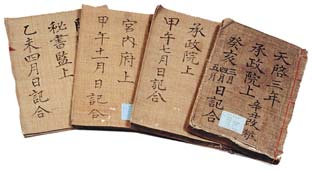 天啓三年
承政院上
癸亥
日記合
承政院上
甲午七月日記合
宮內府上
甲午十一月日記合
秘書監上
乙未四月日記合